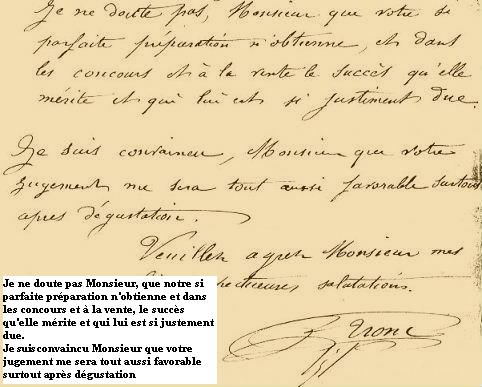 Je ne doute pas, Monsieur que votre si
parfaite préparation n'obtienne, et dans
les concours et à la vente le succès qu'elle
mérite et qui lui est si justiment due.
Je suis convaincu, Monsieur que votre
jugement me sera tout aussi favorable surtout
apres dégustation.
Veuillez agréer Monsieur mes
salutations.
Je ne doute pas Monsieur, que notre si
parfaite préparation n'obtienne et dans
les concours et à la vente, le succès
qu'elle mérite et qui lui est si justement
due.
Je suisconvaincu Monsieur que votre
jugement me sera tout aussi favorable
surtout après dégustation